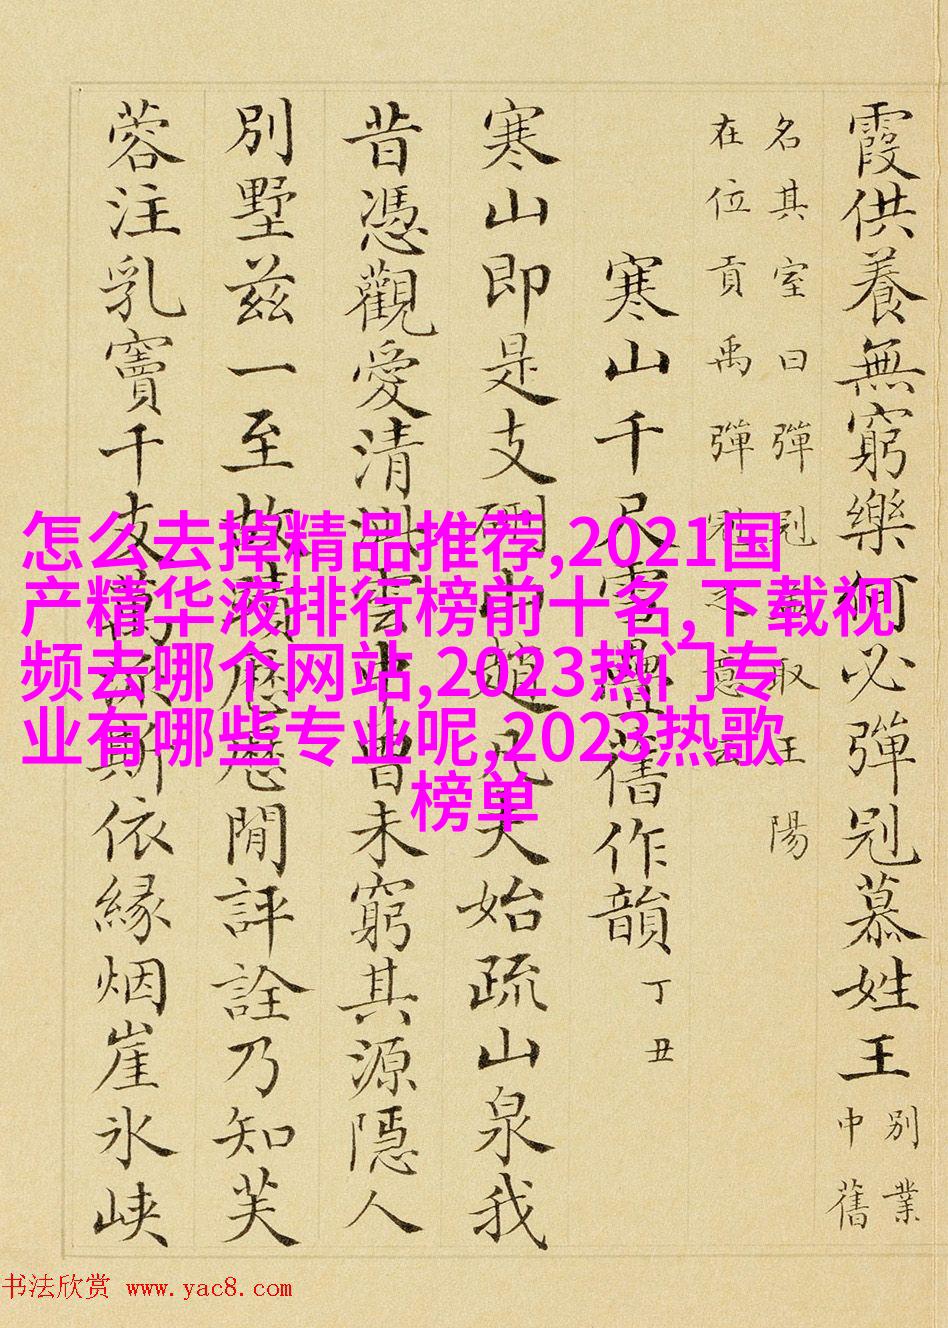 霞供養無窮樂何必彈冠慕姓王
別業
中舊
名其室曰彈冠室取王陽
在位貢禹彈冠之意云
寒山千尺雪疊舊作韻 丁丑
寒山即是支硎中趙凡夫始疏山泉我
昔憑觀愛清雲中曾未窮其源隱人
別墅茲一至故蹟歷歷閒評詮乃知芙
蓉注乳竇千支萬派斯依緣烟崖氷峽
怎么去掉精品推荐,2021国
产精华液排行榜前十名,下载视
频去哪个网站,2023热门专
业有哪些专业呢,2023热歌
榜单
书法欣赏 www.yac8.com